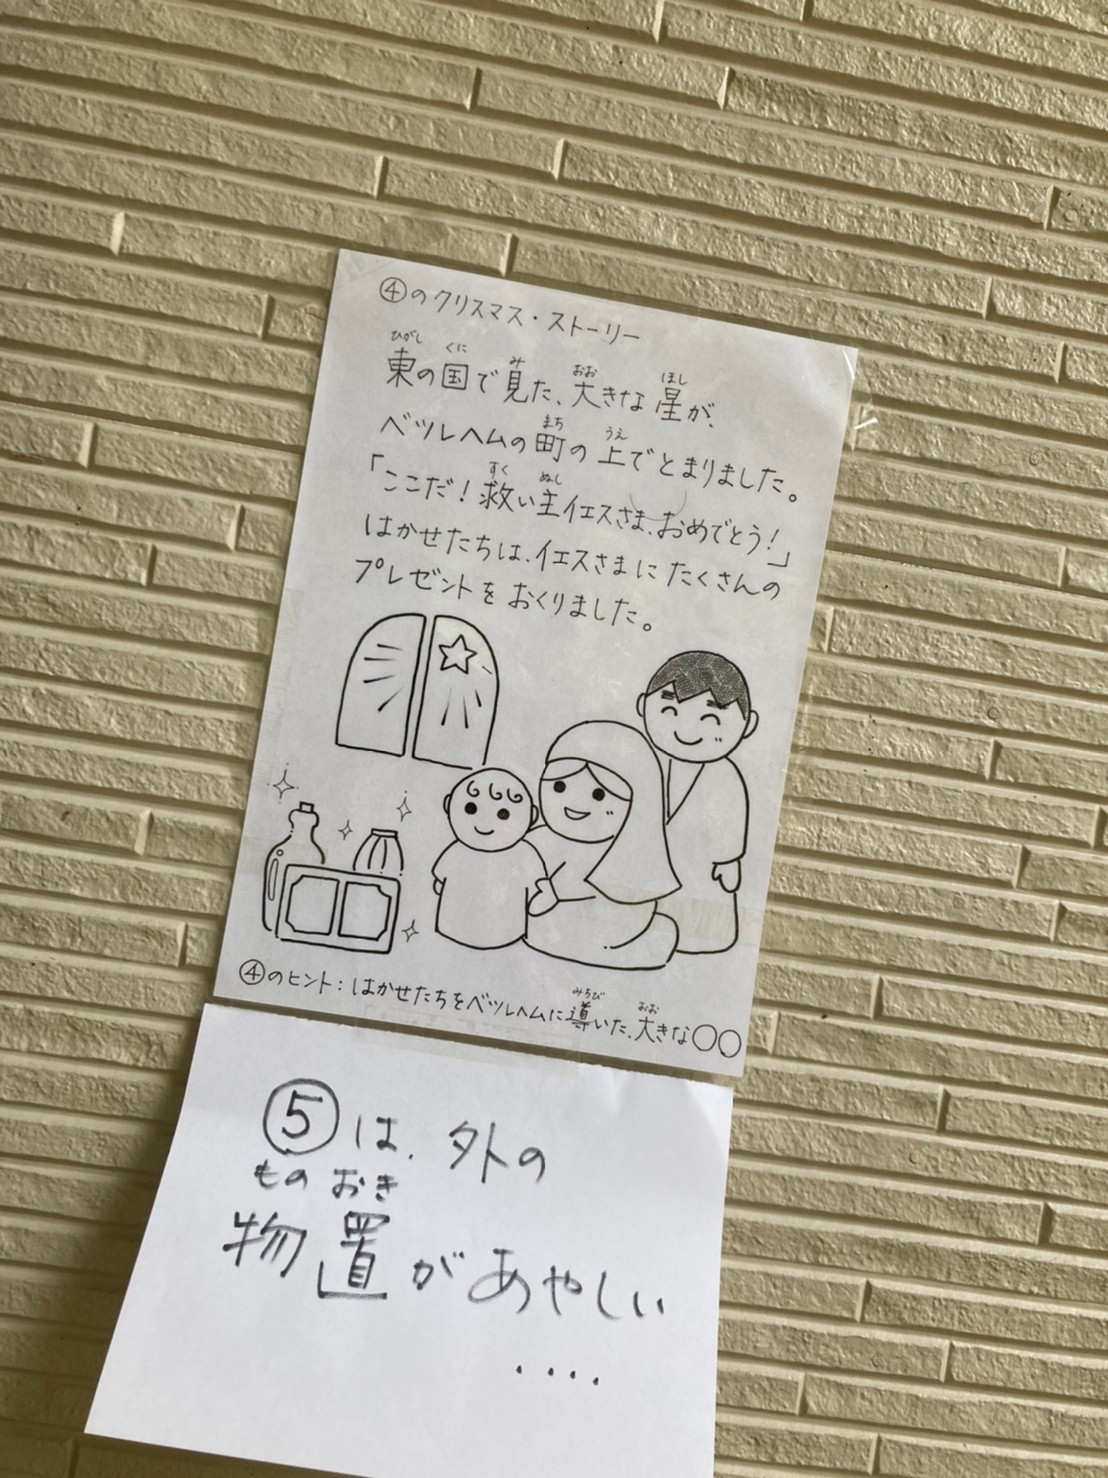 ④のクリスマス・ストーリー
ひがし くに み おお ほし
東の国で見た、大きな星が、
まち うえ
ベツレヘムの町の上でとまりました。
すく ぬし
「ここだ！救い主イエスさま、おめでとう！」
はかせたちは、イエスさまにたくさんの
プレゼントをおくりました。
みちび おお
④のヒント：はかせたちをベツレヘムに導いた、大きな〇〇
⑤は、外の
ものおき
物置があやしい
‥‥